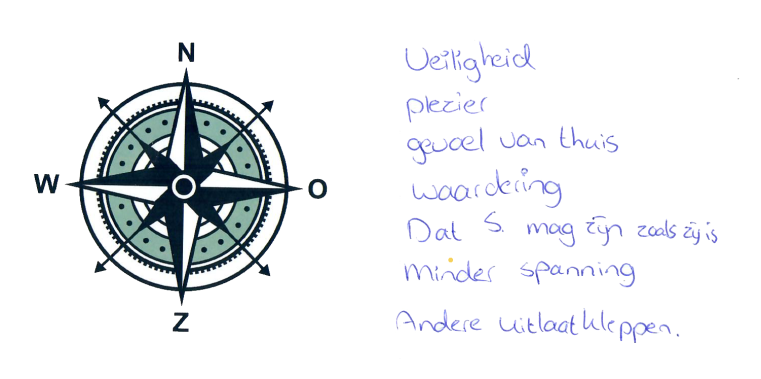 N
W
O
Z
Veiligheid
plezier
gevoel van thuis
waardering
Dat S. mag zijn zoals zij is
minder spanning
Andere uitlaatkleppen.